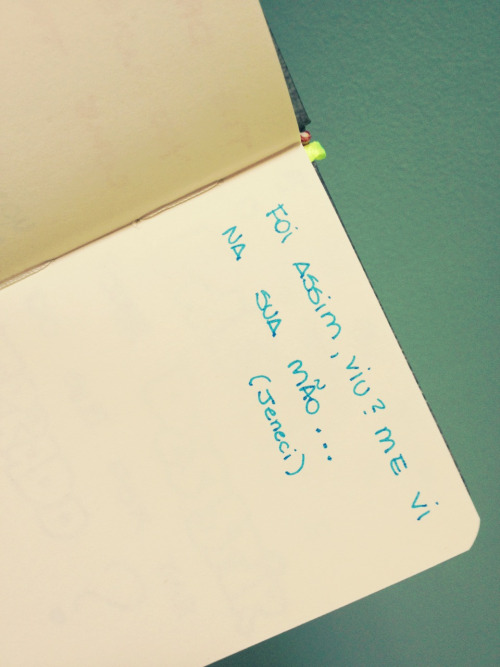 FOI ASSIM, VIU? ME VI
NA SUA MÃO...
(Jeneci)